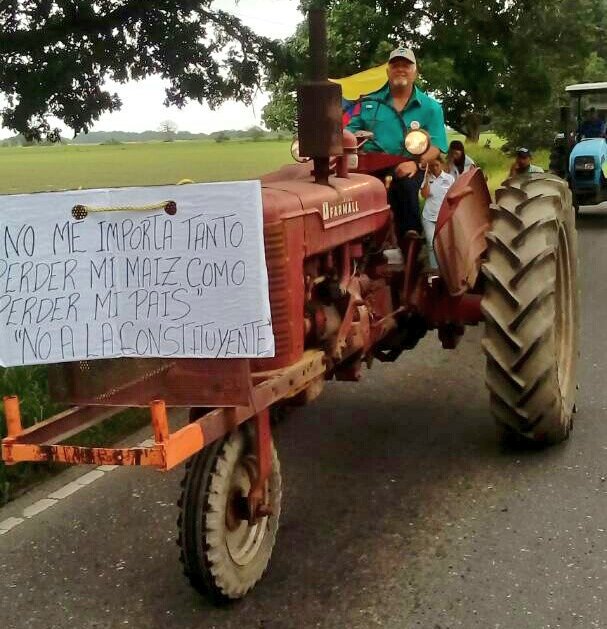 NO ME IMPORTA TANTO
PERDER MI MAIZ COMO
PERDER MI PAIS"
"NO A LA CONSTITUYENTE
FARMALL